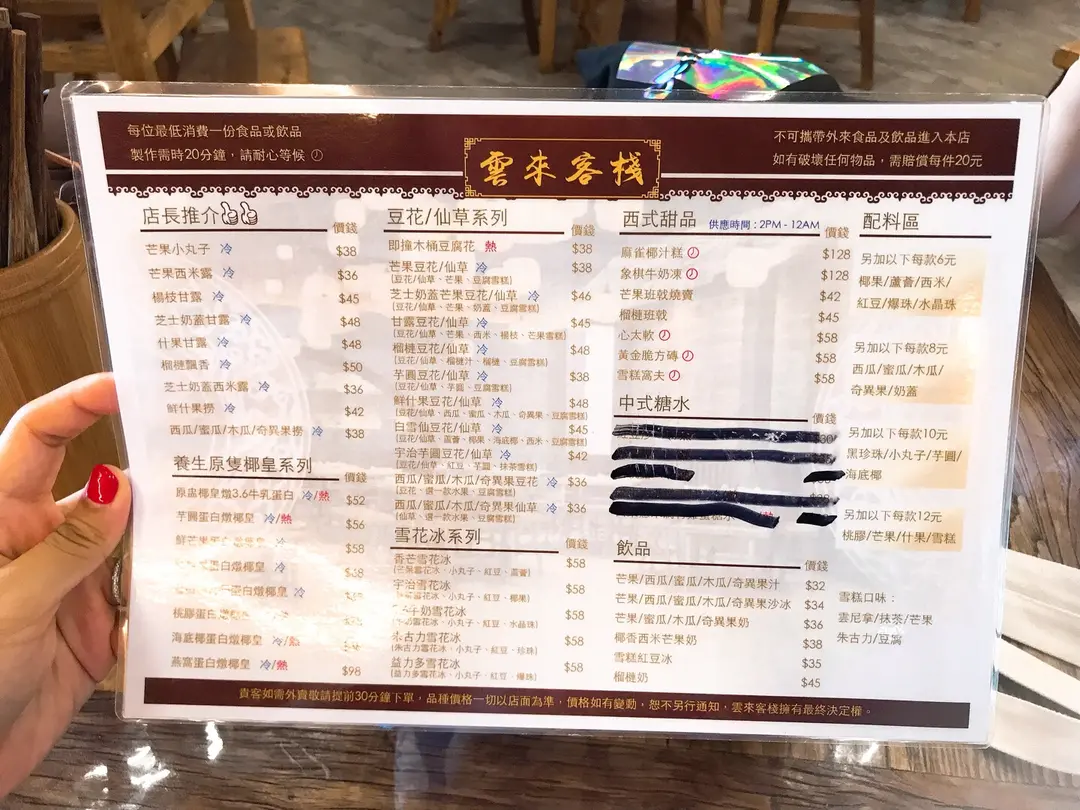 每位最低消費一份食品或飲品
製作需時20分鐘，請耐心等候
雲來客棧
不可攜帶外來食品及飲品進入本店
如有破壞任何物品，需賠償每件20元
店長推介 價錢
芒果小丸子 冷 $38
芒果西米露 冷 $36
楊枝甘露 冷 $45
芝士奶蓋甘露 冷 $48
什果甘露 冷 $48
榴槤飄香 冷 $50
芝士奶蓋西米露 冷 $36
鮮什果撈 冷 $42
西瓜/蜜瓜/木瓜/奇異果撈 冷 $38
養生原隻椰皇系列 價錢
原盅椰皇燉3.6牛乳蛋白 冷/熱 $52
芋圓蛋白燉椰皇 冷/熱 $56
鮮芒果蛋白燉椰皇 冷 $58
蛋白燉椰皇 冷
蛋白燉椰皇 冷
桃膠蛋白燉椰皇
海底椰蛋白燉椰皇 冷/熱
燕窩蛋白燉椰皇 冷/熱 $98
豆花/仙草系列 價錢
即撞木桶豆腐花 熱 $38
芒果豆花/仙草 冷 $38
(豆花/仙草、芒果、豆腐雪糕)
芝士奶蓋芒果豆花/仙草 冷 $46
(豆花/仙草、芒果、奶蓋、豆腐雪糕)
甘露豆花/仙草 冷 $45
(豆花/仙草、芒果、西米、楊枝、芒果雪糕)
榴槤豆花/仙草 冷 $48
(豆花/仙草、榴槤汁、榴槤、豆腐雪糕)
芋圓豆花/仙草 冷 $38
(豆花/仙草、芋圓、豆腐雪糕)
鮮什果豆花/仙草 冷 $48
(豆花/仙草、西瓜、蜜瓜、木瓜、奇異果、豆腐雪糕)
白雪仙豆花/仙草 冷 $45
(豆花/仙草、蘆薈、椰果、海底椰、西米、豆腐雪糕)
宇治芋圓豆花/仙草 冷 $42
(豆花/仙草、紅豆、芋圓、抹茶雪糕)
西瓜/蜜瓜/木瓜/奇異果豆花 冷 $36
(豆花、選一款水果、豆腐雪糕)
西瓜/蜜瓜/木瓜/奇異果仙草 冷 $36
(仙草、選一款水果、豆腐雪糕)
雪花冰系列 價錢
香芒雪花冰 $58
(芒果雪花冰、小丸子、紅豆、蘆薈)
宇治雪花冰 $58
小丸子、紅豆、椰果)
牛奶雪花冰 $58
小丸子、紅豆、水晶珠)
朱古力雪花冰 $58
(朱古力雪花冰、小丸子、紅豆、珍珠)
益力多雪花冰 $58
(益力多雪花冰、小丸子、紅豆、爆珠)
西式甜品 供應時間：2PM - 12AM 價錢
麻雀椰汁糕 $128
象棋牛奶凍 $128
芒果班戟燒賣 $42
榴槤班戟 $45
心太軟 $58
黃金脆方磚 $58
雪糕窩夫 $58
中式糖水 價錢
飲品 價錢
芒果/西瓜/蜜瓜/木瓜/奇異果汁 $32
芒果/西瓜/蜜瓜/木瓜/奇異果沙冰 $34
芒果/蜜瓜/木瓜/奇異果奶 $36
椰香西米芒果奶 $38
雪糕紅豆冰 $35
榴槤奶 $45
配料區
另加以下每款6元
椰果/蘆薈/西米/
紅豆/爆珠/水晶珠
另加以下每款8元
西瓜/蜜瓜/木瓜/
奇異果/奶蓋
另加以下每款10元
黑珍珠/小丸子/芋圓/
海底椰
另加以下每款12元
桃膠/芒果/什果/雪糕
雪糕口味：
雲尼拿/抹茶/芒果
朱古力/豆腐
貴客如需外賣敬請提前30分鐘下單，品種價格一切以店面為準，價格如有變動，恕不另行通知，雲來客棧擁有最終決定權。